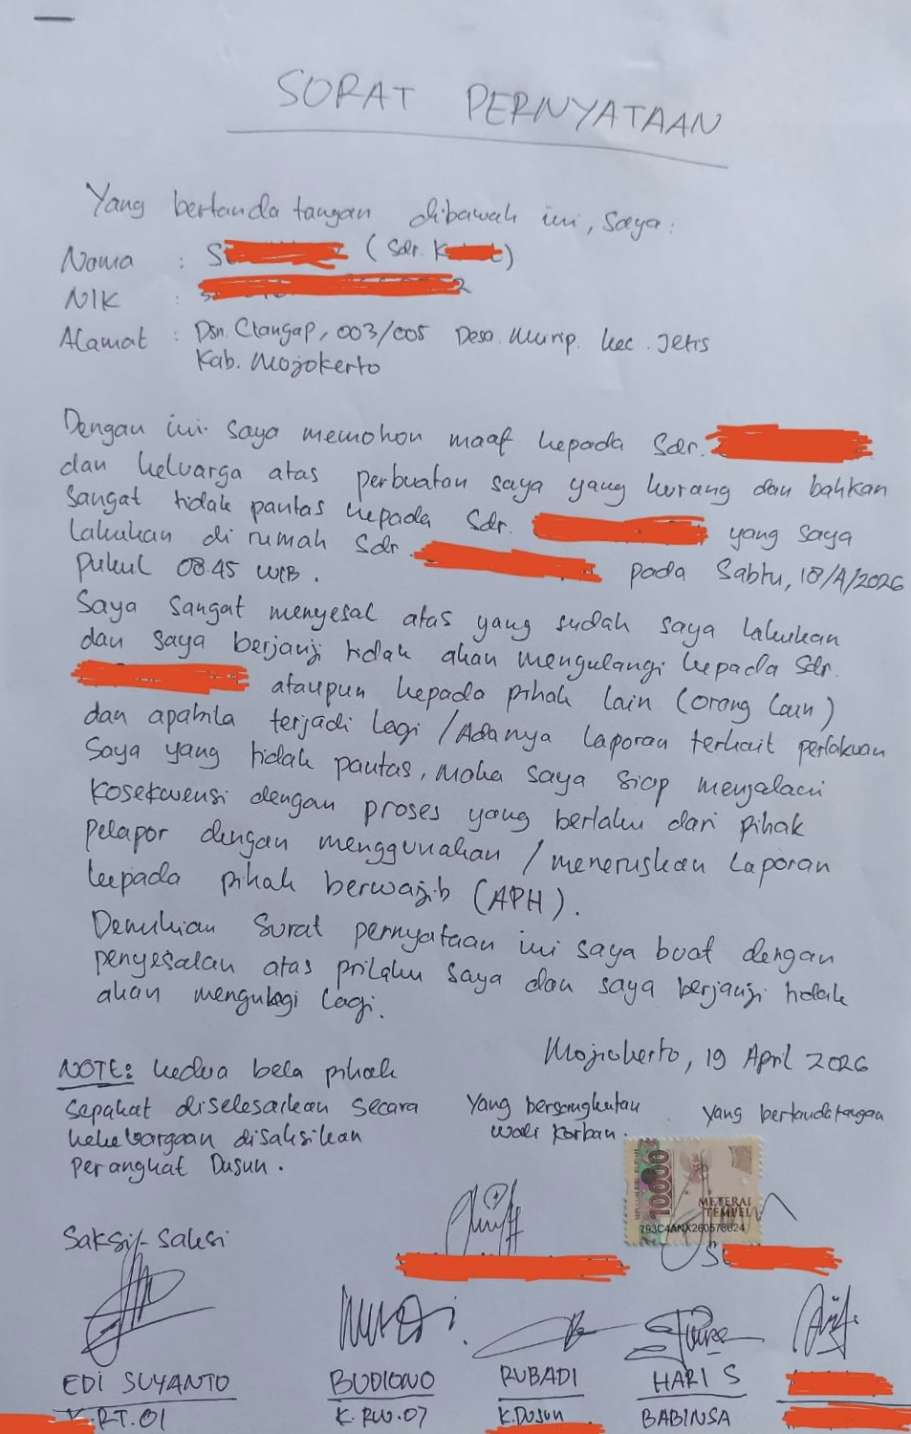 SURAT PERNYATAAN
Yang bertanda tangan dibawah ini, saya:
Nama : S (Sdr. K t)
NIK :
Alamat : Dsn. Clangap, 003/005 Desa. Murip. kec. Jetis
Kab. Mojokerto
Dengan ini saya memohon maaf kepada Sdr.
dan keluarga atas perbuatan saya yang kurang dan bahkan
sangat tidak pantas kepada Sdr. yang saya
lakukan di rumah Sdr. pada Sabtu, 18/4/2026
Pukul 08.45 WIB.
Saya sangat menyesal atas yang sudah saya lakukan
dan saya berjanji tidak akan mengulangi kepada Sdr.
ataupun kepada pihak lain (orang lain)
dan apabila terjadi lagi / Adanya laporan terkait perlakuan
saya yang tidak pantas, maka saya siap menjalani
kosekwensi dengan proses yang berlaku dari pihak
pelapor dengan menggunakan / meneruskan laporan
kepada pihak berwajib (APH).
Demikian surat pernyataan ini saya buat dengan
penyesalan atas prilaku saya dan saya berjanji tidak
akan mengulagi lagi.
Mojokerto, 19 April 2026
NOTE: kedua bela pihak
sepakat diselesaikan secara
kekeluargaan disaksikan
perangkat Dusun.
Yang bersangkutan
wali korban.
Yang bertandatangan
10000
METERAI
TEMPEL
293C4ANX260578824
Saksi-saksi
EDI SUYANTO
K.RT.01
BUDIONO
K.RW.07
RUBADI
K.DUSUN
HARI S
BABINSA